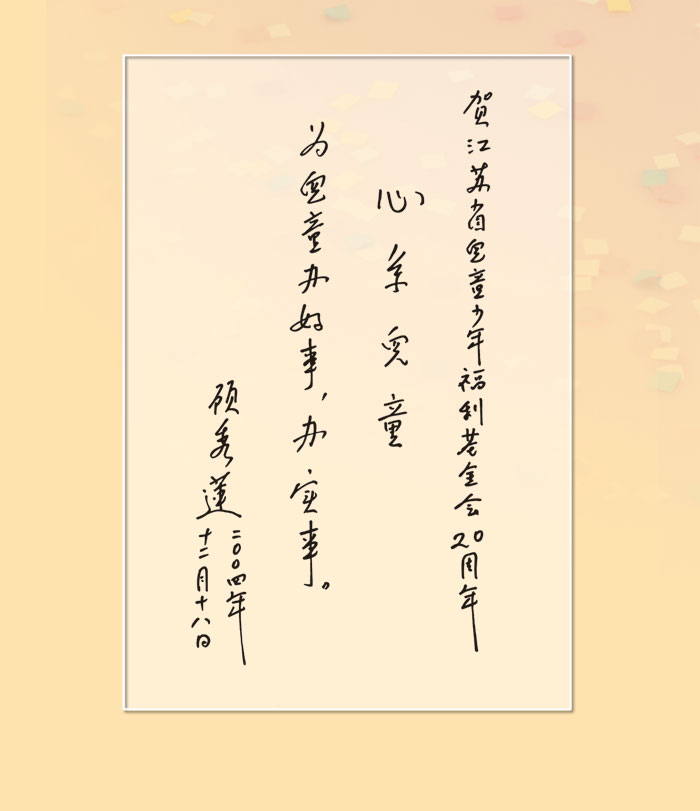 贺江苏省兒童少年福利基金会20周年
心系兒童
为兒童办好事，办实事。
顾秀莲
二〇〇四年
十二月十八日